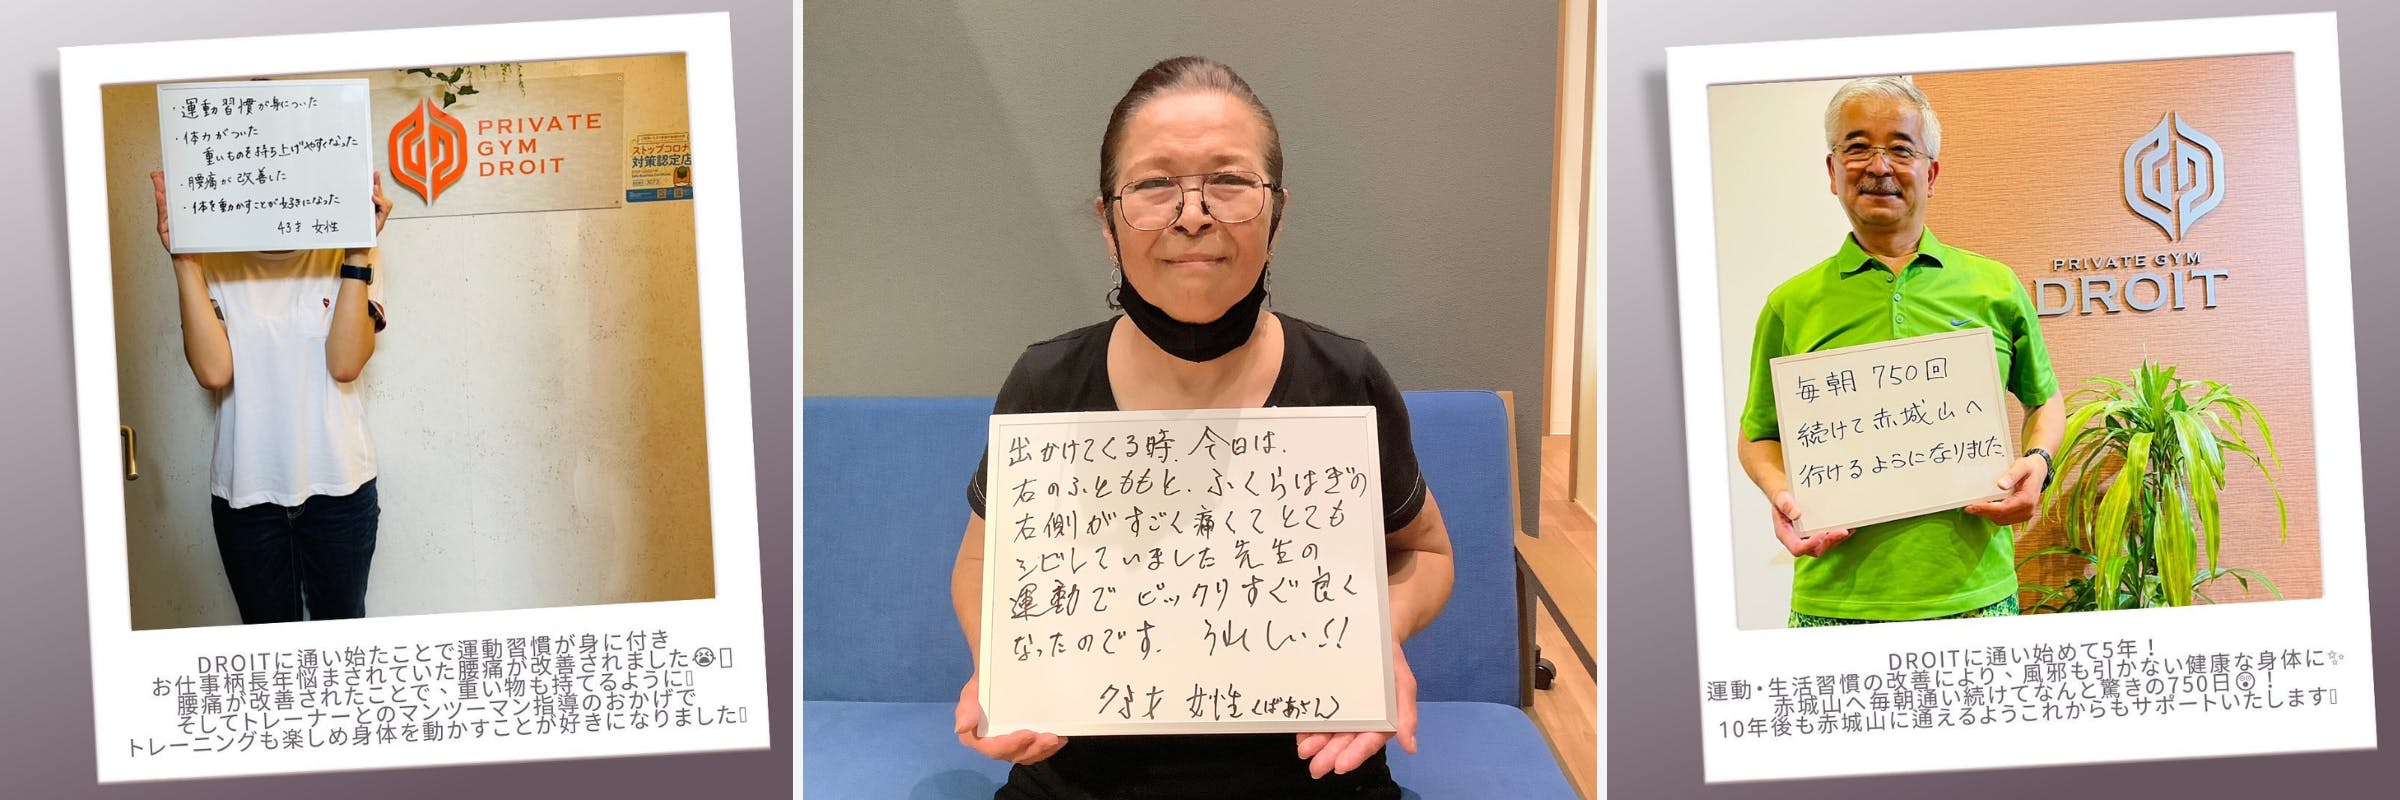 ・運動習慣が身についた
・体力がついた
重いものを持ち上げやすくなった
・腰痛が改善した
・体を動かすことが好きになった
43才 女性
PRIVATE
GYM
DROIT
ストップコロナ
対策認定店
DROITに通い始たことで運動習慣が身に付き
お仕事柄長年悩まされていた腰痛が改善されました😭
腰痛が改善されたことで、重い物も持てるように
そしてトレーナーとのマンツーマン指導のおかげで
トレーニングも楽しめ身体を動かすことが好きになりました
出かけてくる時、今日は、
右のふとももと、ふくらはぎの
右側がすごく痛くてとても
シビレていました先生の
運動でビックリすぐ良く
なったのです。うれしい!!
才 女性(ばあさん)
PRIVATE GYM
DROIT
毎朝 750回
続けて赤城山へ
行けるようになりました。
DROITに通い始めて5年!
運動・生活習慣の改善により、風邪も引かない健康な身体に✨
赤城山へ毎朝通い続けてなんと驚きの750日😲!
10年後も赤城山に通えるようこれからもサポートいたします